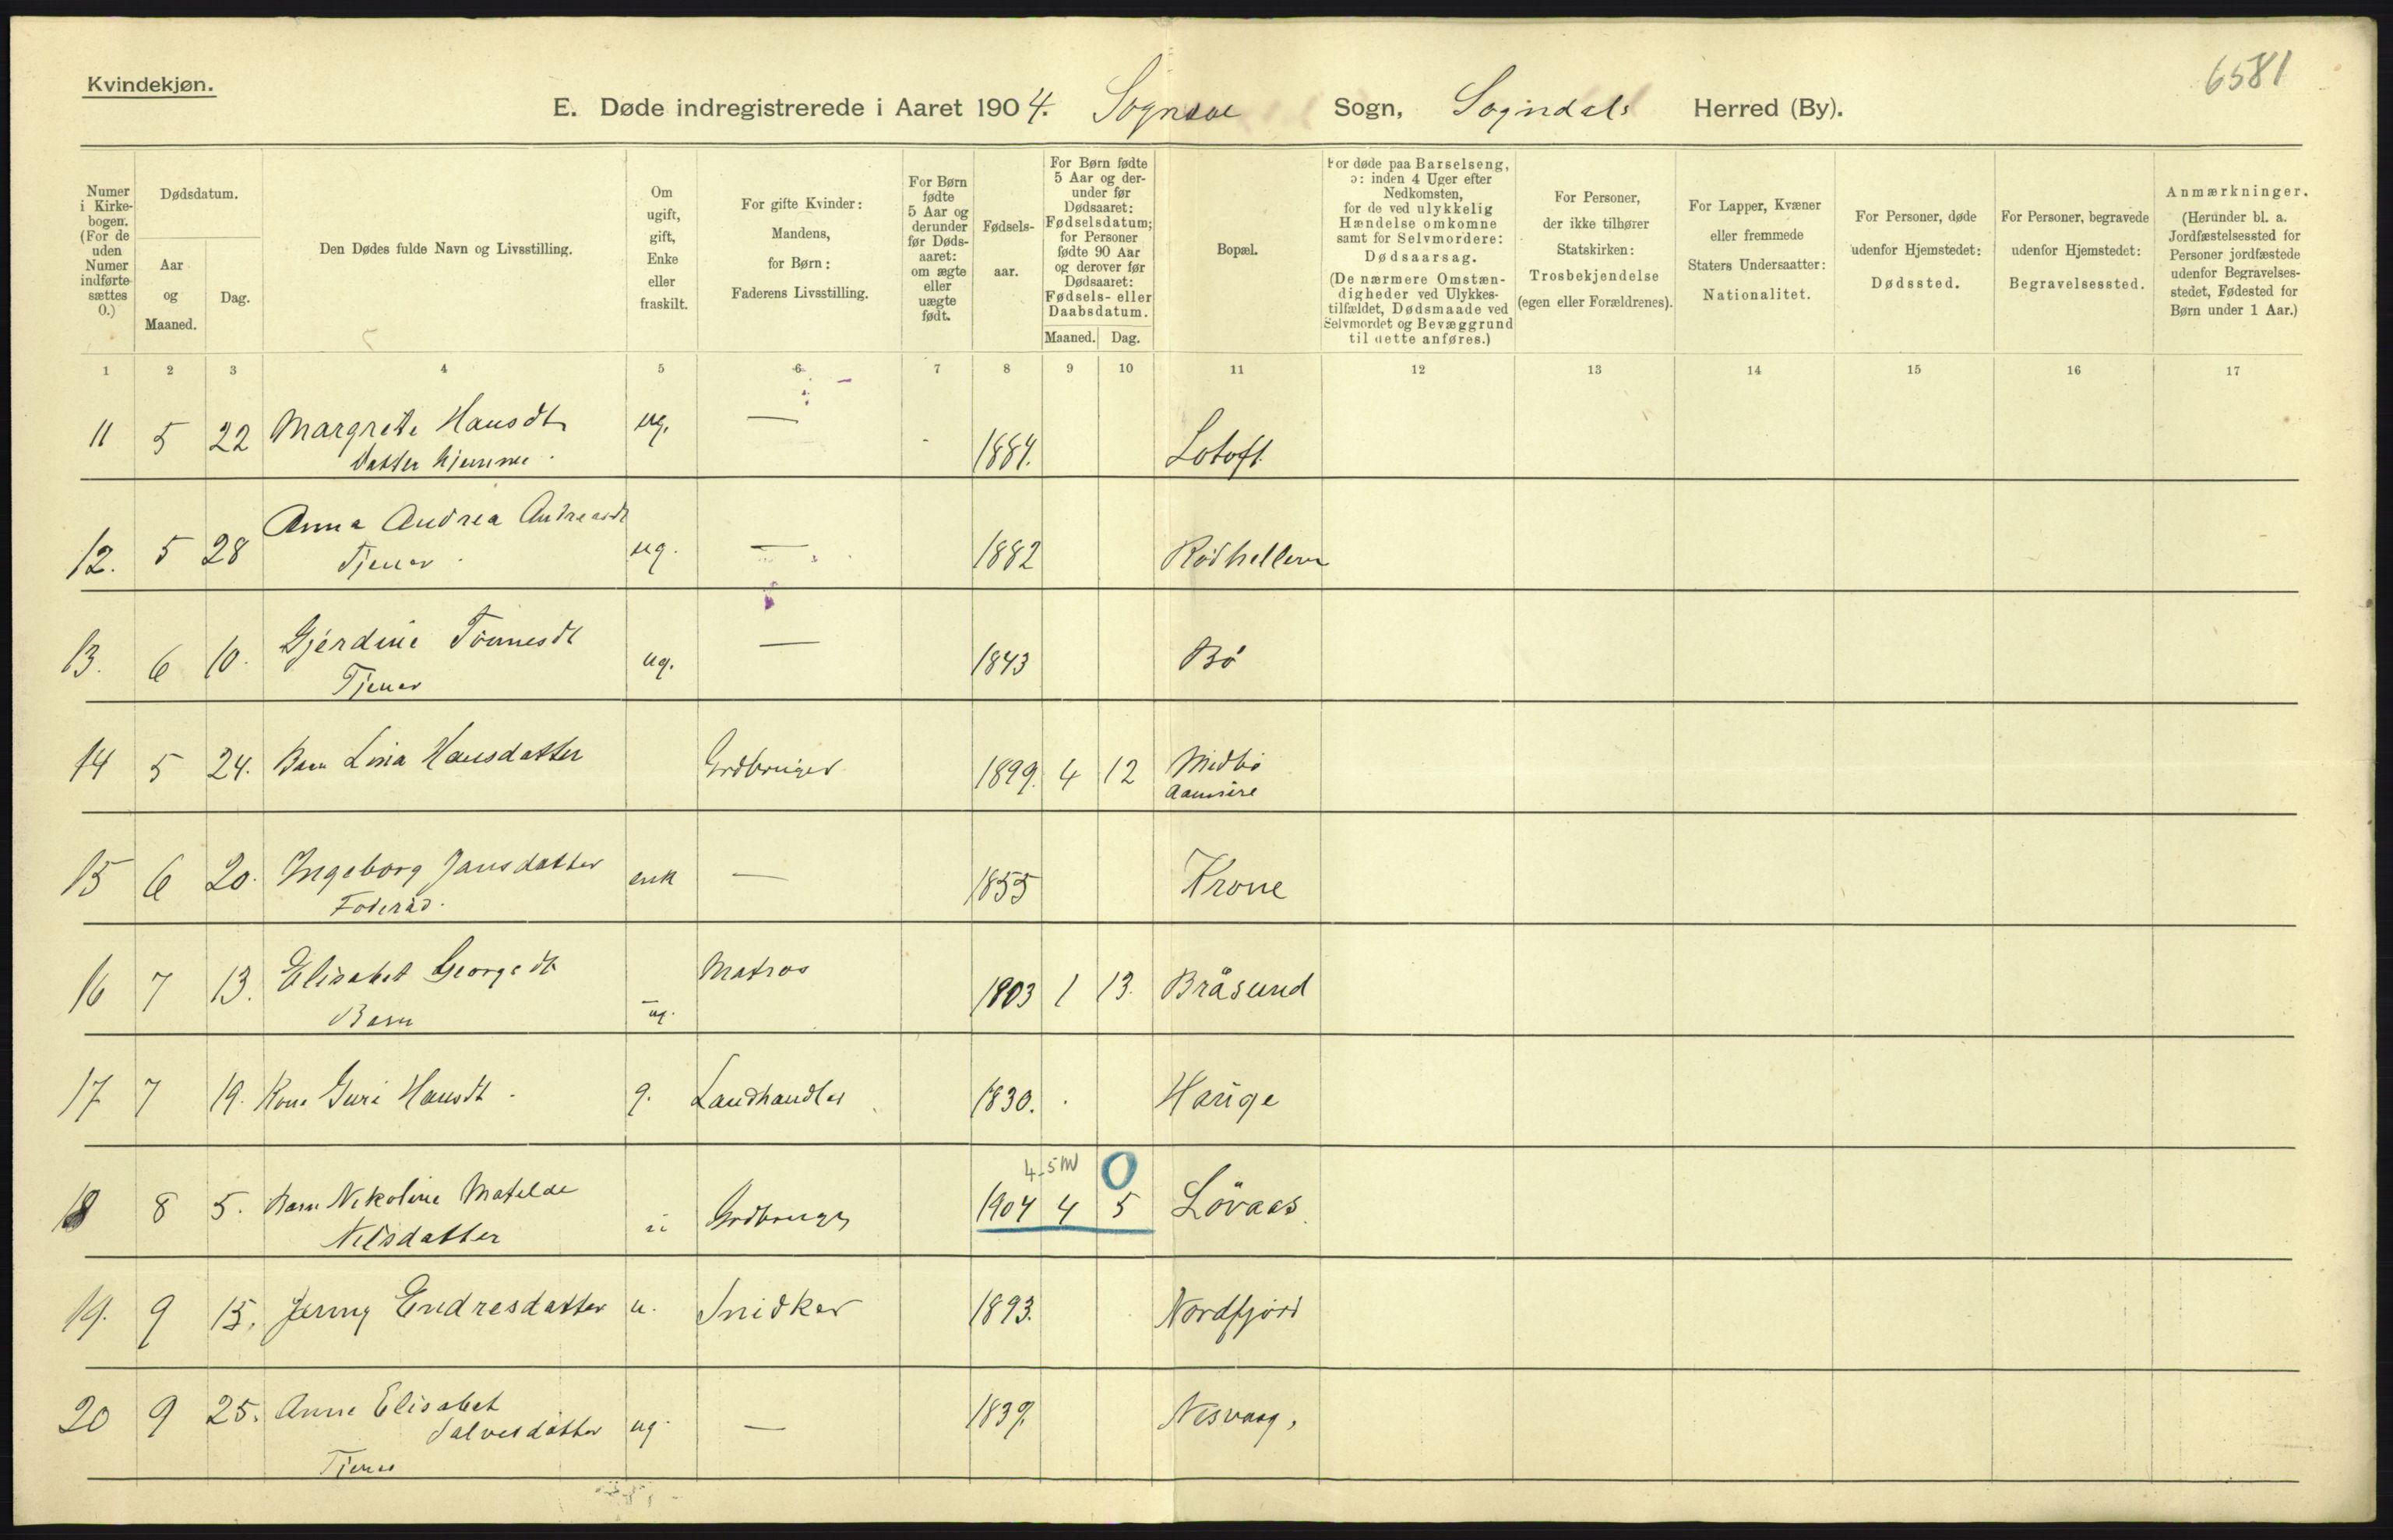 Kvindekjøn.
6581
E. Døde indregistrerede i Aaret 1904. Sogndal Sogn, Sogndals Herred (By).
Numer i Kirkebogen. (For de uden Numer indførte sættes 0.)
Dødsdatum.
Aar og Maaned.
Dag.
Den Dødes fulde Navn og Livsstilling.
Om ugift, gift, Enke eller fraskilt.
For gifte Kvinder: Mandens, for Børn: Faderens Livsstilling.
For Børn fødte 5 Aar og derunder før Dødsaaret: om ægte eller uægte født.
Fødselsaar.
For Børn fødte 5 Aar og derunder før Dødsaaret: Fødselsdatum; for Personer fødte 90 Aar og derover før Dødsaaret: Fødsels- eller Daabsdatum.
Maaned. Dag.
Bopæl.
For døde paa Barselseng, ɔ: inden 4 Uger efter Nedkomsten, for de ved ulykkelig Hændelse omkomne samt for Selvmordere: Dødsaarsag. (De nærmere Omstændigheder ved Ulykkestilfældet, Dødsmaade ved Selvmordet og Bevæggrund til dette anføres.)
For Personer, der ikke tilhører Statskirken: Trosbekjendelse (egen eller Forældrenes).
For Lapper, Kvæner eller fremmede Staters Undersaatter: Nationalitet.
For Personer, døde udenfor Hjemstedet: Dødssted.
For Personer, begravede udenfor Hjemstedet: Begravelsessted.
Anmærkninger. (Herunder bl. a. Jordfæstelsessted for Personer jordfæstede udenfor Begravelsesstedet, Fødested for Børn under 1 Aar.)
1 2 3 4 5 6 7 8 9 10 11 12 13 14 15 16 17
11 5 22 Margrete Hansdt ug. — 1884. Lotoft
Datter hjemme
12. 5 28 Anna Andrea Andreasdt ug. — 1882 Rødhellern
Tjener
13. 6 10. Gjerdine Tønnesdt ug. — 1843 Bö
Tjener
14 5 24. Barn Lina Hansdatter Grdbruger 1899. 4 12 Midbö
Aamsire
15 6 20. Ingeborg Jansdatter enk — 1855 Krone
Foderåd.
16 7 13. Elisabet Georgsdt ug. Matros 1903 1 13. Bråsund
Barn
17 7 19. Kone Guri Hansdt g. Landhandler 1830. Hauge
4-5 M 0
18 8 5. Barn Nikoline Matilde Grdbruger 1904 4 5 Lövaas
Nilsdatter
19. 9 15. Jenny Endresdatter u. Snidker 1893. Nordfjord
20 9 25. Anne Elisabet ug. — 1839. Nesvaag,
Salvesdatter
Tjener